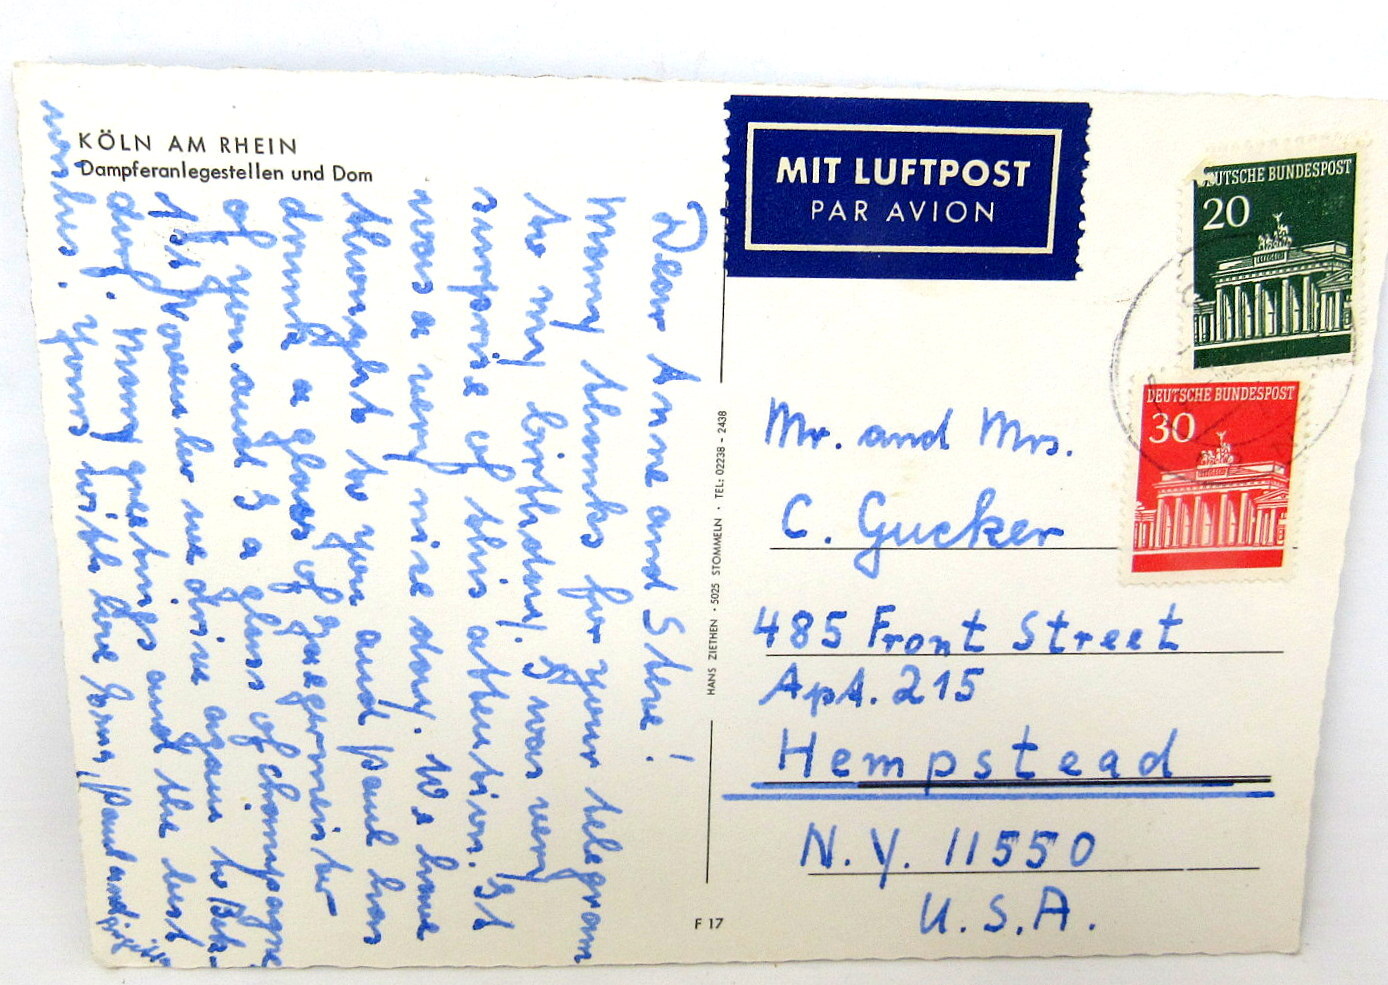 KÖLN AM RHEIN
Dampferanlegestellen und Dom
Dear Anne and Steve!
Many thanks for your telegram
to my birthday. I was very
surprise of this attention. It
was a very nice day. We have
thought to you and Paul has
drunk a glass of Jägermeister
of you and I a glass of champagne
1st November we drive again to
day. Many greetings and the best
wishes. Yours with love Erna, Paul and
HANS ZIETHEN · 5025 STOMMELN · TEL: 02238 - 2438
F 17
MIT LUFTPOST
PAR AVION
DEUTSCHE BUNDESPOST
20
DEUTSCHE BUNDESPOST
30
Mr. and Mrs.
C. Gucker
485 Front Street
Apt. 215
Hempstead
N.Y. 11550
U.S.A.